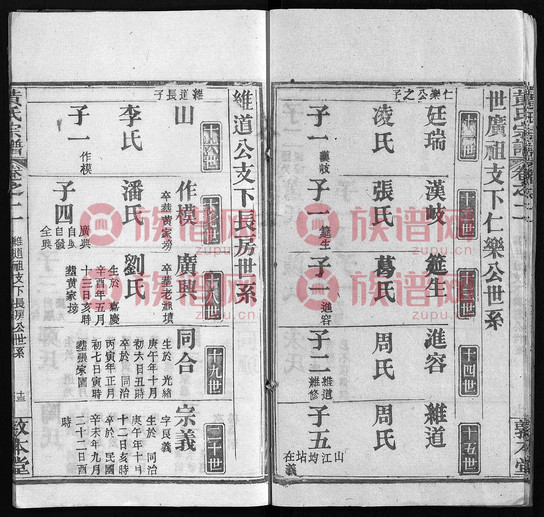 世廣祖支下仁樂公世系
仁樂公之子
廷瑞
凌氏
子一
漢岐
漢岐
張氏
子一
筵生
十四世
筵生
葛氏
子一
進容
進容
周氏
子二
維道
維修
十五世
維道
周氏
子五
山江均坫在義
黃氏宗譜
卷之二
敦本堂
維道公支下長房世系
維道長子
山
李氏
子一
作模
作模
卒葬黃家塝
潘氏
子四
廣興
自發
全興
十八世
廣興
劉氏
生於嘉慶
辛酉年五月
初三日亥時
葬黃家塝
十九世
同合
生於光緒
庚午年十月
初六日丑時
卒於同治
丙寅年正月
初七日寅時
葬張家園
二千世
宗義
字良義
生於同治
庚午年十月
十二日亥時
卒於民國
辛未年九月
二十二日酉
時
黃氏宗譜
卷之二
維道祖支下長房公世系
敦本堂
族谱网
zupu.cn